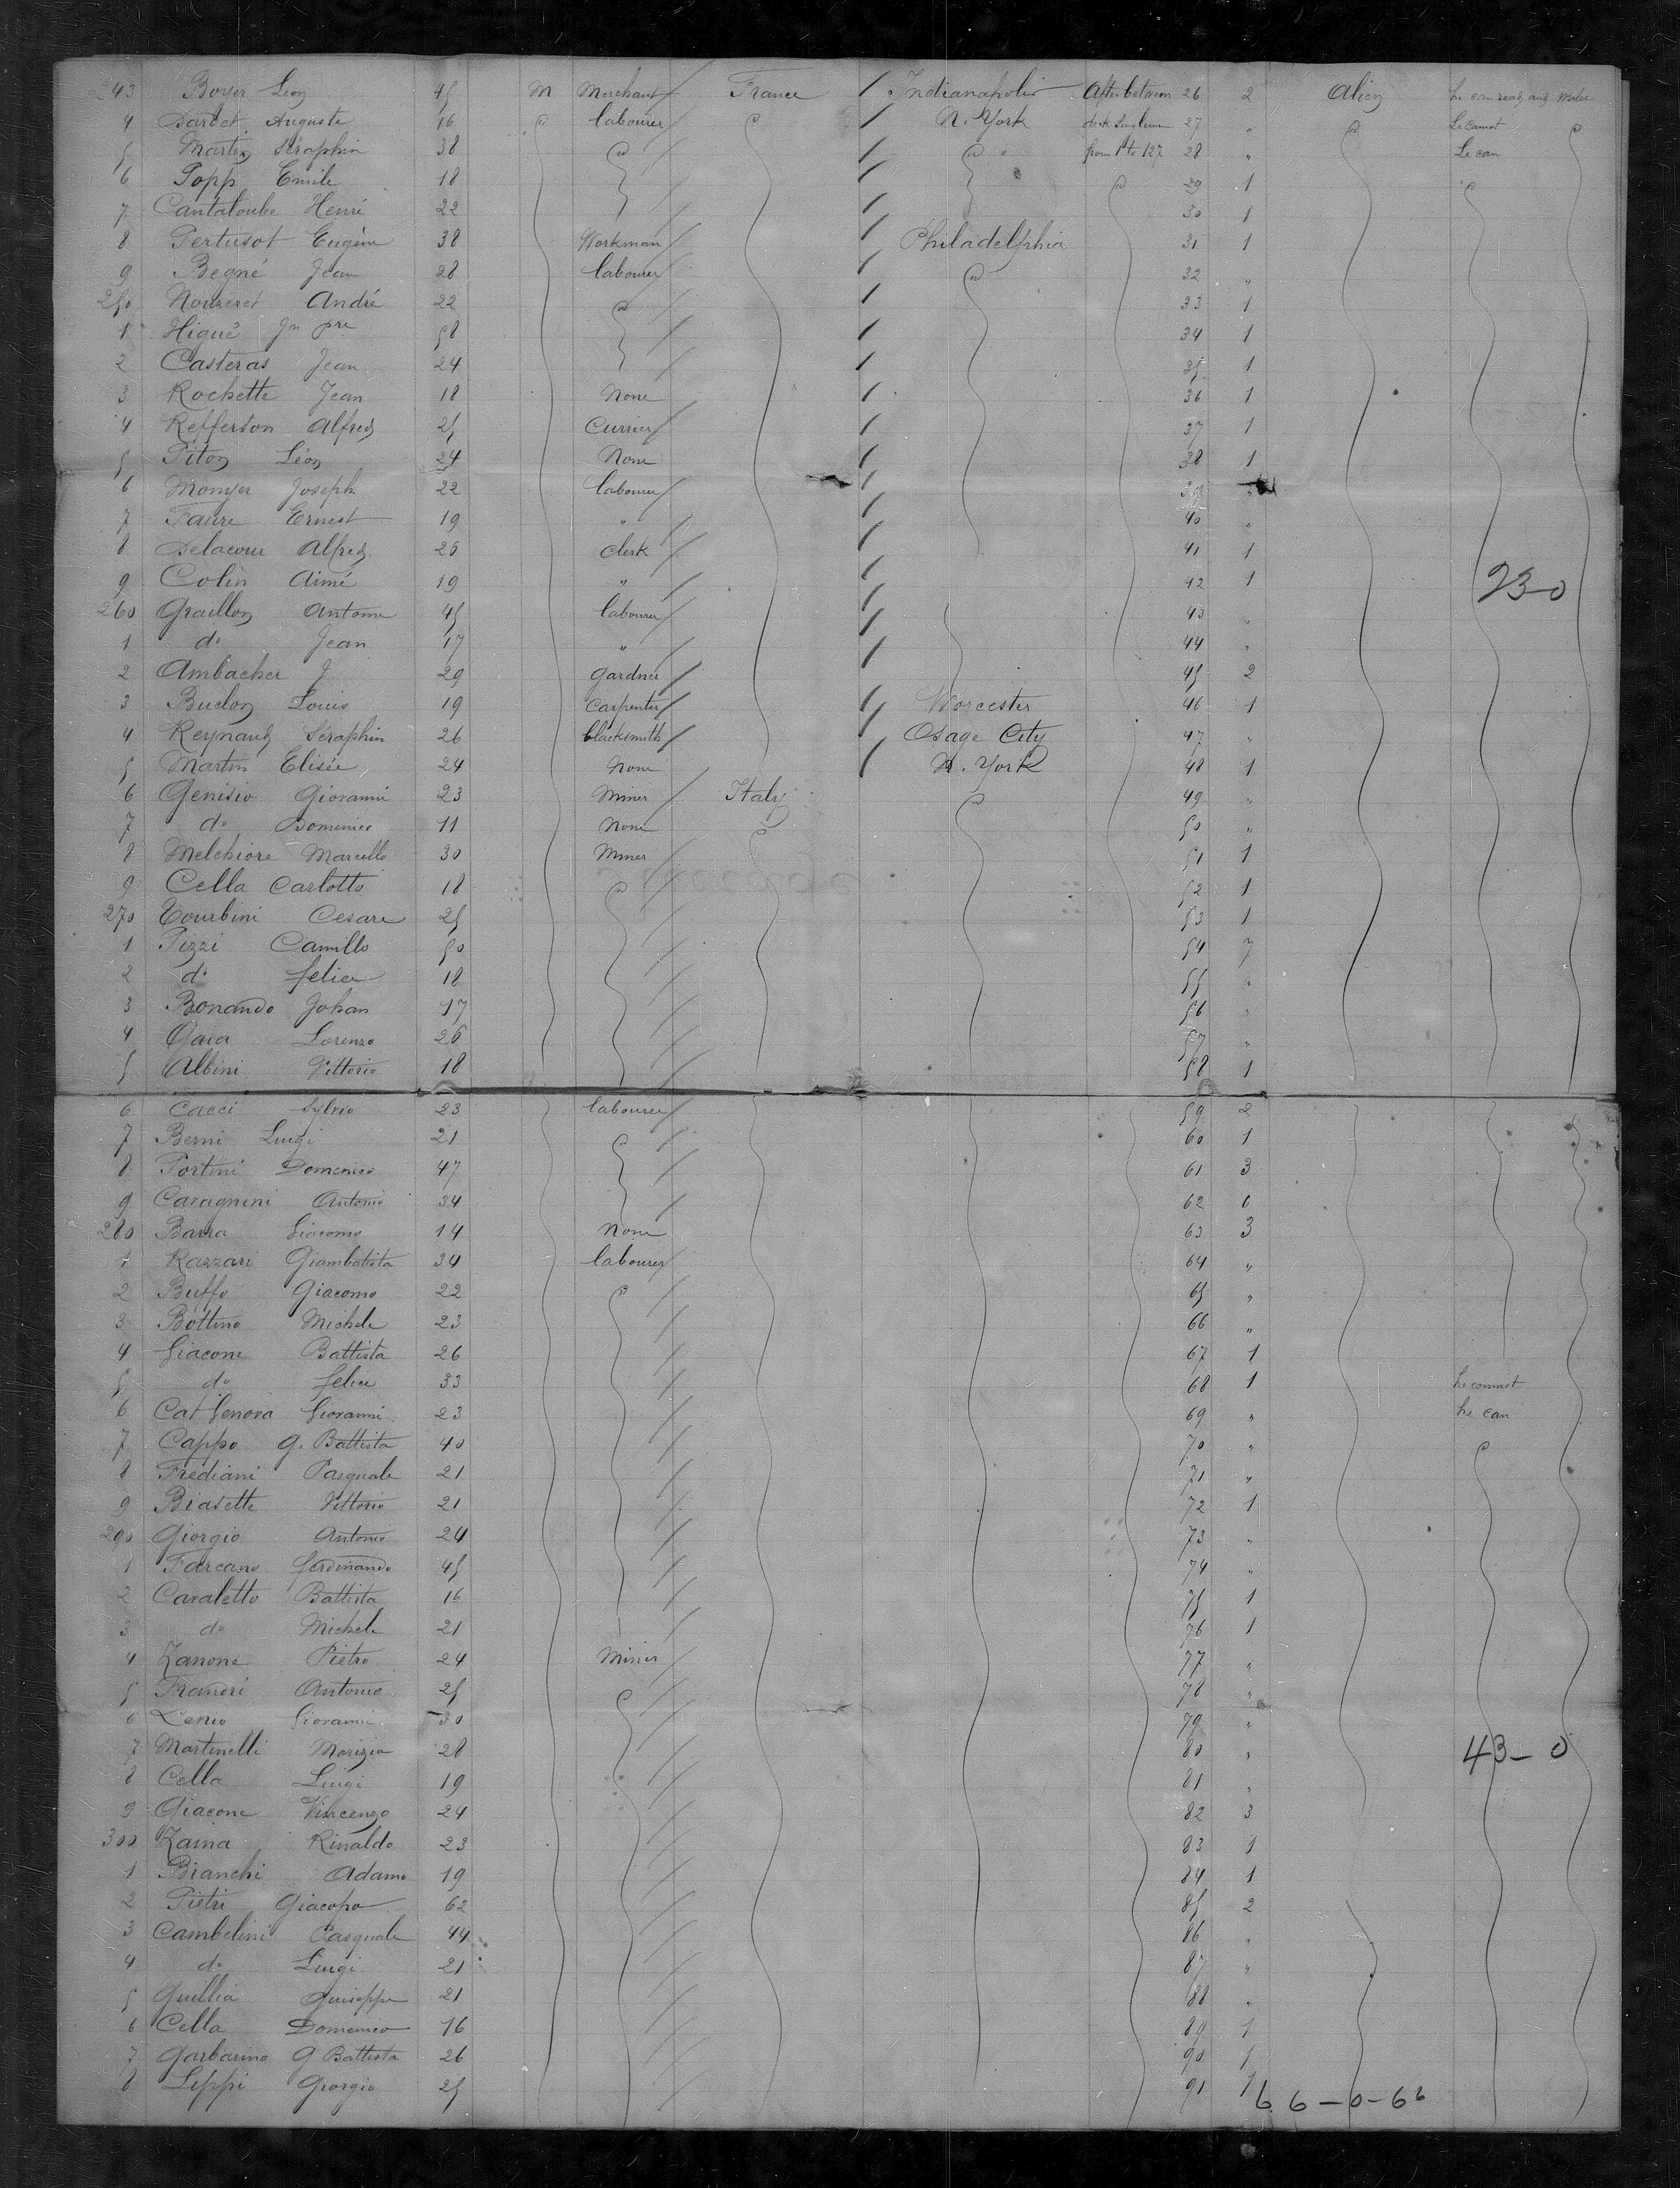 243 Boyer Léon 45 M Merchant France Indianapolis After between 26 2 Alien he can read and write
4 Dardet Auguste 16 labourer N. York deck 27 " he cannot
5 Martin Séraphin 38 from 1 to 127 28 " he can
6 Popp Emile 18 29 1
7 Cantaloube Henri 22 30 1
8 Pertusot Eugène 38 Workman Philadelphia 31 1
9 Begné Jean 28 labourer 32 "
250 Nouzeret André 22 33 1
1 Higué Jn Pre 58 34 1
2 Casteras Jean 24 35 1
3 Rochette Jean 18 None 36 1
4 Refferson Alfred 25 Currier 37 1
5 Piton Léon 24 None 38 1
6 Monyer Joseph 22 labourer 39 "
7 Faure Ernest 19 " 40 "
8 Delacour Alfred 26 Clerk 41 1
9 Colin Aimé 19 " 42 1
230
260 Graillon Antoine 45 labourer 43 "
1 do Jean 17 " 44 "
2 Ambacher J 29 gardner 45 2
3 Buclon Louis 19 Carpenter Worcester 46 1
4 Reynaud Séraphin 26 blacksmith Osage City 47 "
5 Martin Elisée 24 None N. York 48 1
6 Genisio Giovanni 23 Miner Italy 49 "
7 do Domenico 11 None 50 "
8 Melchiore Marcello 30 Miner 51 1
9 Cella Carlotto 18 52 1
270 Tourbini Cesare 25 53 1
1 Pizzi Camillo 50 54 7
2 do felice 18 55 "
3 Bonando Johan 17 56 "
4 Gaia Lorenzo 26 57 "
5 Albini Vittorio 18 58 1
6 Cacci Sylvio 23 labourer 59 2
7 Berni Luigi 21 60 1
8 Fortini Domenico 47 61 3
9 Caragnini Antonio 34 62 6
280 Barra Giacomo 14 None 63 3
1 Razzari Giambatista 34 labourer 64 "
2 Buffo Giacomo 22 65 "
3 Bottino Michele 23 66 "
4 Giacone Battista 26 67 1
5 do felice 33 68 1 he cannot
6 Cat Genova Giovanni 23 69 " he can
7 Cappo G. Battista 40 70 "
8 Frediani Pasquale 21 71 "
9 Biasette Vittorio 21 72 1
290 Giorgio Antonio 24 73 "
1 Farcano ferdinando 45 74 "
2 Cavaletto Battista 16 75 1
3 do Michele 21 76 1
4 Zanone Pietro 24 Miner 77 "
5 Frandri Antonio 25 78 "
6 Giovanni 30 79 "
7 Martinelli Morizio 28 80 " 43-0
8 Cella Luigi 19 81 "
9 Giacone Vincenzo 24 82 3
300 Zaina Rinaldo 23 83 1
1 Bianchi Adamo 19 84 1
2 Pietri Giacopo 62 85 2
3 Cambelini Pasquale 44 86 "
4 do Luigi 21 87 "
5 Quillia Guiseppe 21 88 "
6 Cella Domenico 16 89 1
7 Garbarino G Battista 26 90 1
8 Lippi Giorgio 25 91 1
66-0-66